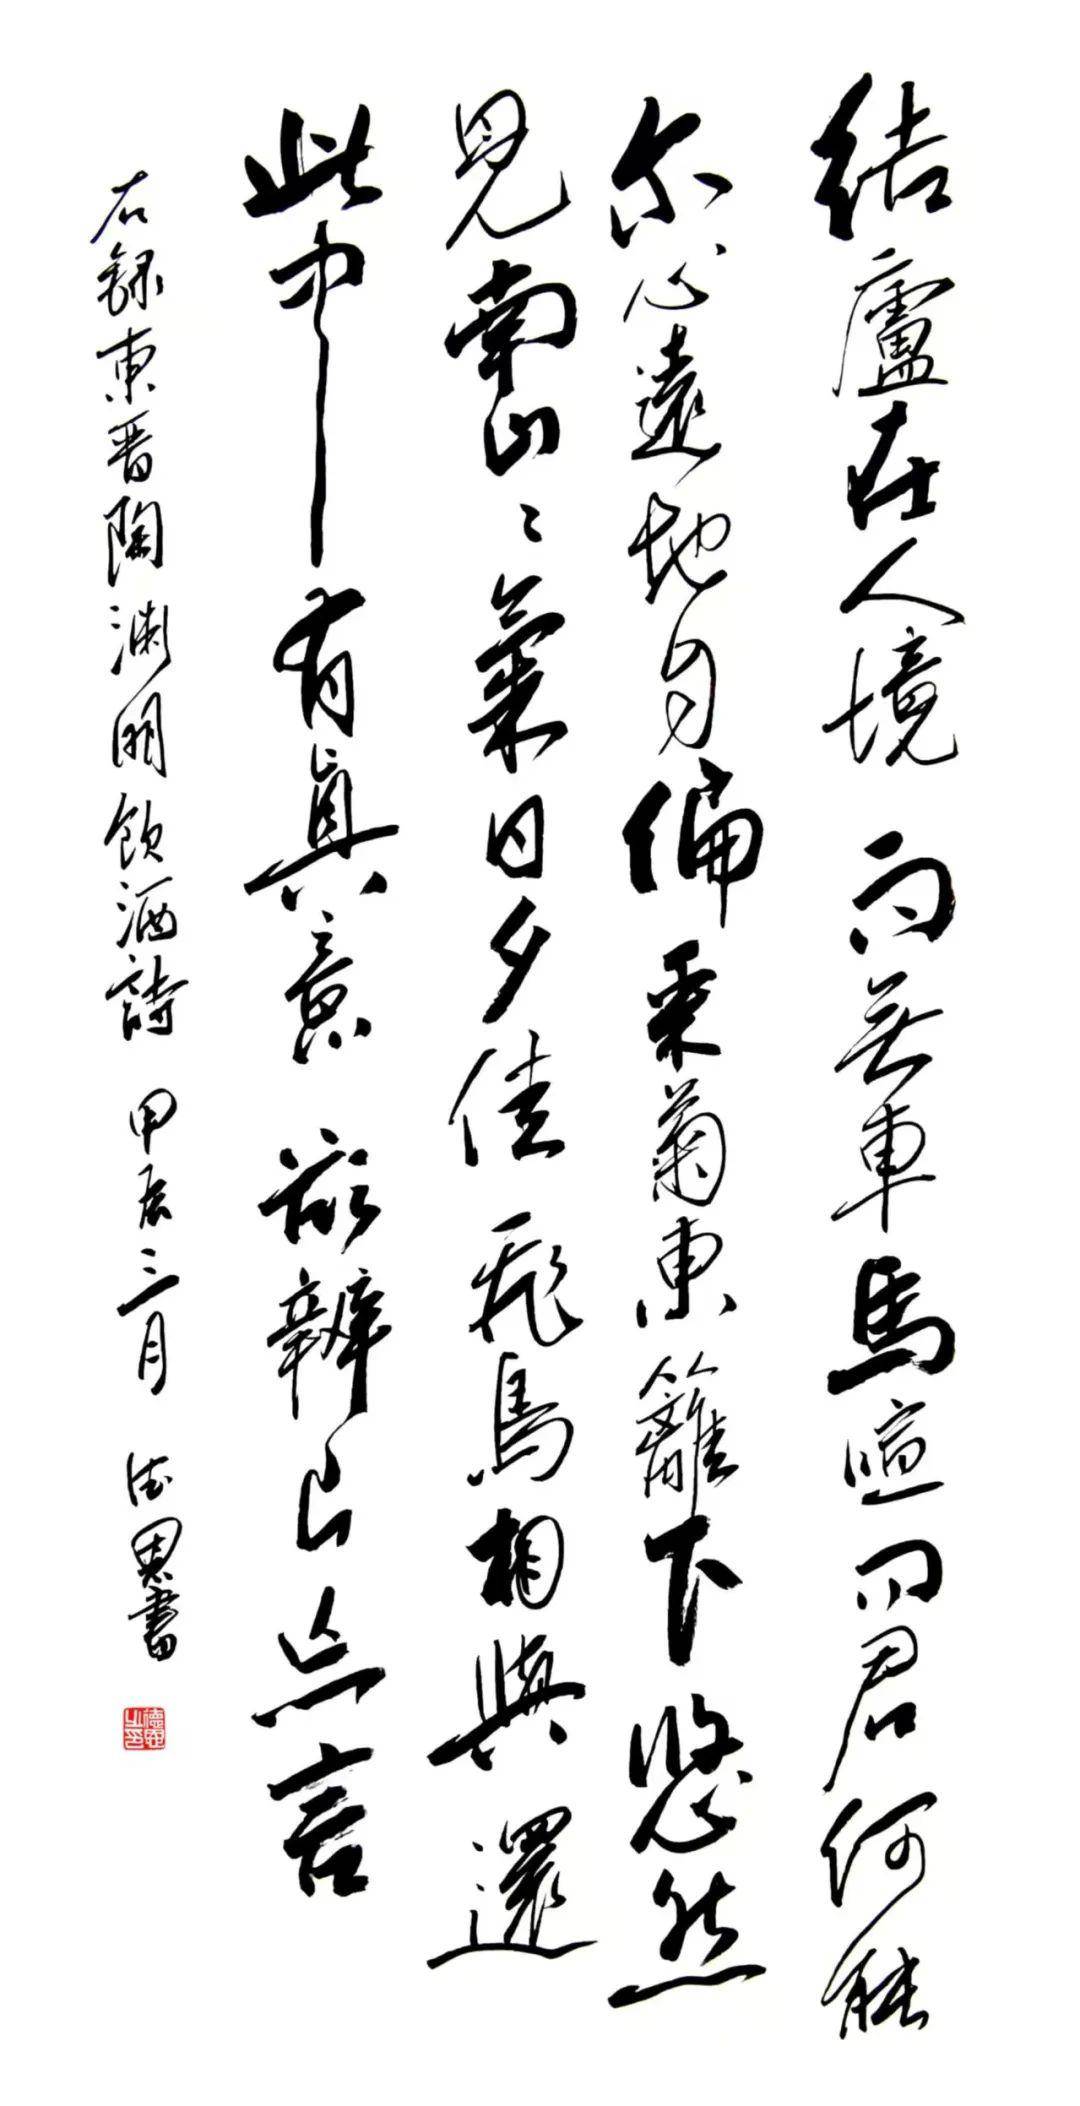 結廬在人境而無車馬喧問君何能
尔心遠地自偏采菊東籬下悠然
見南山山氣日夕佳飛鳥相與還
此中有真意欲辨已忘言
右録東晋陶渊明飲酒詩 甲辰三月 德恩書
德恩之印